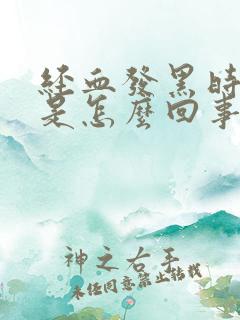 經血發黑時
是怎麼回事
神之右手
未经同意禁止转载